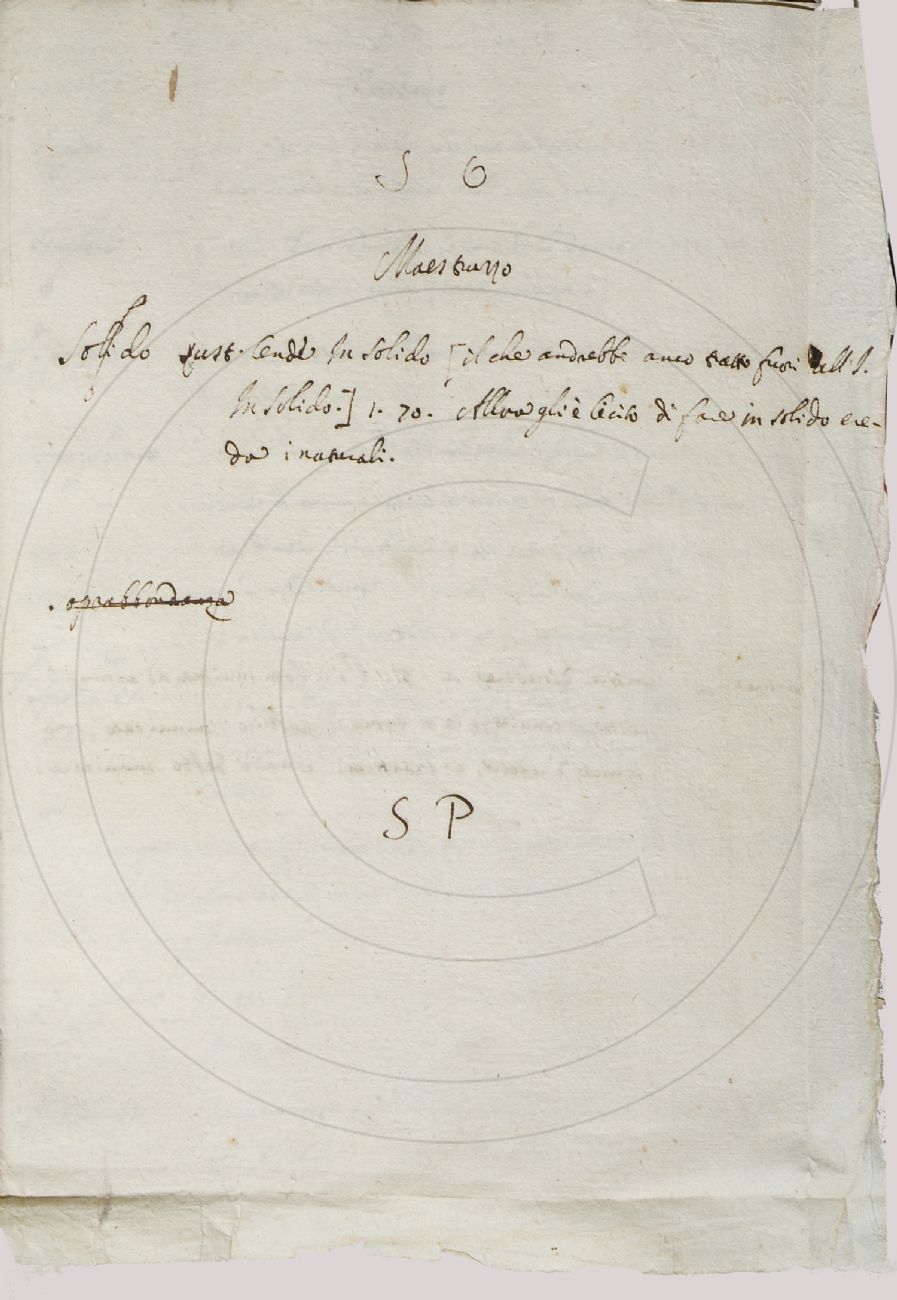 S O
Maestruzo
Solido sust. Lend. In solido [il che andrebbe anco tratto fuori all' I.
In solido.] 1. 70. Allora gli è lecito di fare in solido ere-
da i naturali.
Soprabbondanza
S P